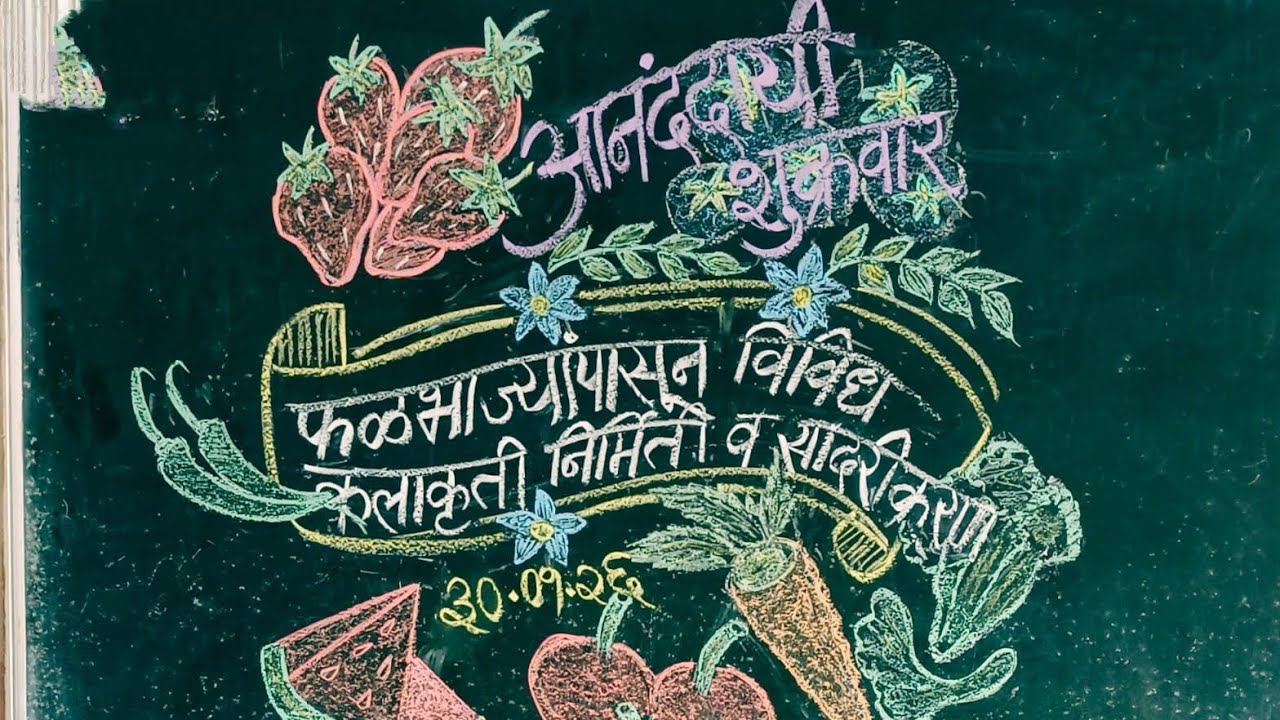 आनंददायी
शुक्रवार
फळभाज्यांपासून विविध
कलाकृती निर्मिती व सादरीकरण
३०.०१.२६